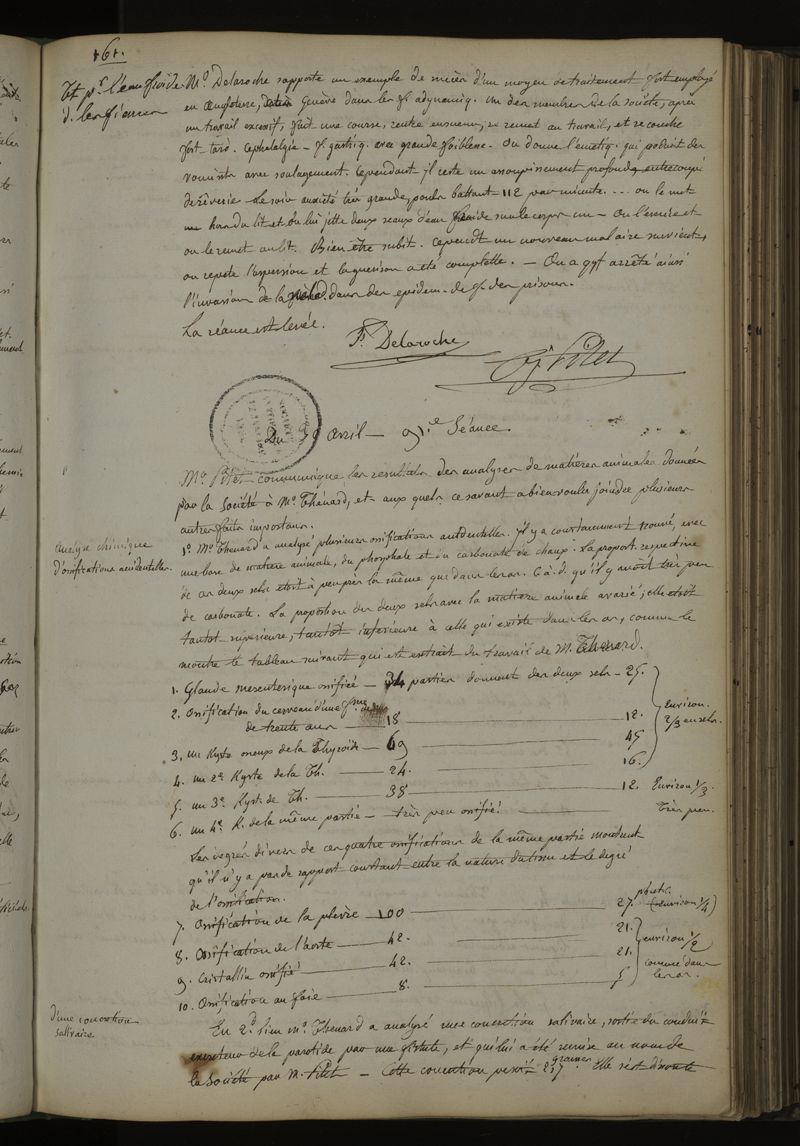 161.
Et pr. l'eau froide
d. les fievres
Mr. Delaroche rapporte un exemple de succès d'un moyen de traitement fort employé
en Angleterre, Genève dans les f. adynamiq. Un des membres de la société, après
un travail excessif, fait une course, rentre en sueur, se remet au travail, et se couche
fort tard. Cephalalgie - f. gastriq. avec grande foiblesse. On donne l'émetiq. qui produit des
vomissts avec soulagement. Cependant il reste un assoupissement profond, entrecoupé
de rêverie. Le soir anxiété très grande, pouls battant 112 par minute. ... on le met
hors du lit et on lui jette deux seaux d'eau froide sur le corps nu - On l'essuie et
on le remet au lit. Bien être subit. Cependt un nouveau malaise survient,
on repete l'aspersion et la guerison a été complette. - On a qqf arrêté ainsi
l'invasion de la dans des epidem. de f. des prisons.
La séance est levée.
F. Delaroche
Du 30 Avril - 91.e Séance.
Mr. Pitet communique les résultats des analyses de matières animales données
par la Société à Mr. Thenard, et aux quels ce savant a bien voulu joindre plusieurs
autres faits importans.
Analyse chimique
d'ossifications accidentelles.
1o. Mr. Thenard a analysé plusieurs ossifications accidentelles. Il y a constamment trouvé, avec
une base de matière animale, du phosphate et du carbonate de chaux. La proport. respective
de ces deux sels étoit à peu près la même que dans les os. C. à. d. qu'il y avoit très peu
de carbonate. La proportion des deux sels avec la matière animale a varié; elle étoit
tantot superieure, tantot inferieure à celle qui existe dans les os, comme le
montre le tableau suivant qui est extrait du travail de M. Thenard.
1. Glande mesenterique ossifiée - 34 parties donnent des deux sels - 25.
2. Ossification du cerveau d'une fme
de trente ans - 18 - 12.
Environ
2/3 en sels.
3. un Kyste osseux de la Thyroide - 69 - 45
4. un 2e Kyste de la Th. - 24. - 16.
5. un 3e Kyst. de Th. - 38 - 12. Environ 1/3.
6. un 4e K. de la même partie - très peu ossifié - très peu.
Les degrés divers de ces quatre ossifications de la même partie montrent
qu'il n'y a pas de rapport constant entre la nature du tissu et le degré
de l'ossification.
7. Ossification de la plevre - 100 - 27. (environ 1/4)
8. Ossification de l'aorte - 42. - 21.
9. Cristallin ossifié - 42. - 21.
environ 1/2
comme dans
les os.
10. Ossification au foie - 8. - 5
d'une concretion
salivaire
En 2d. lieu Mr. Thenard a analysé une concretion salivaire, sortie du conduit
excreteur de la parotide par une fistule, et qui lui a été remise au nom de
la Société par M. Pitet - Cette concretion pesoit 237 graines. Elle s'est dissoute